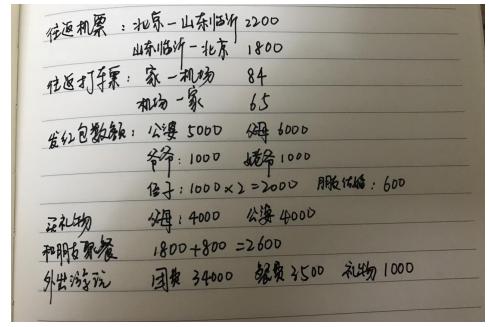 往返机票：北京－山东临沂 2200
山东临沂－北京 1800
往返打车票：家－机场 84
机场－家 65
发红包数额：公婆 5000 父母 6000
爷爷：1000 姥爷 1000
侄子：1000×2=2000 朋友结婚：600
买礼物 父母：4000 公婆 4000
和朋友聚餐 1800+800=2600
外出游玩 团费 34000 餐费 3500 礼物 1000